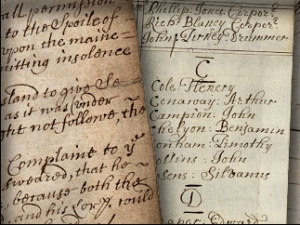 all permission
to the Spoile of
upon the maine
mitting insolence
stand to give Se=
as it was under
ght not followe, the
Complaint to yͤ
sweared, that he
because both the
d, and his Lorp, could
Phillip Jones Corpor
Rich: Blancy Corpor
John Turkey Drummer
C
Cole Henery
Conaway: Arthur
Campion: John
helyon: Benjamin
onham: Timothy
ollins: John
osens: Silvanus
D
aper Edward